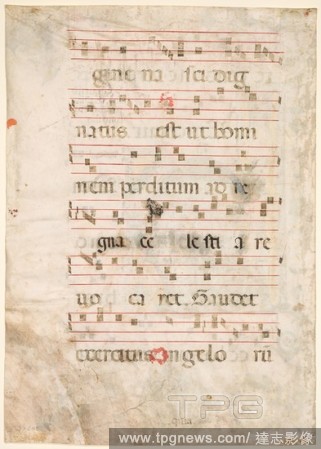 gine na sci dig
natus est ut homi
nem perditum ad re
gna ce le sti a re
uo ca ret. Gaudet
exercitus angelo rū
TPG
www.tpgnews.com/ 達志影像